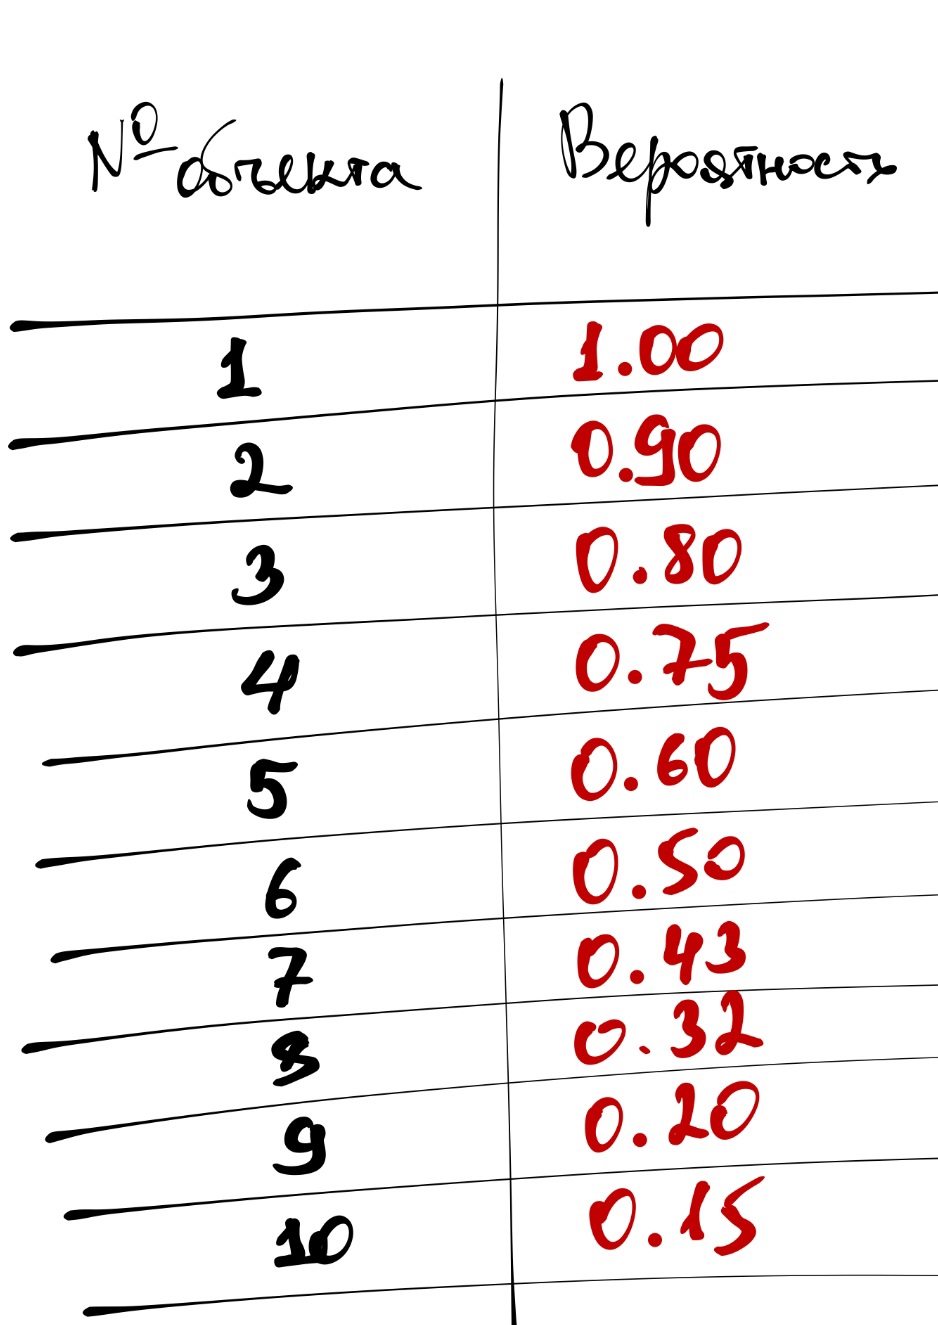 № объекта Вероятность
1 1.00
2 0.90
3 0.80
4 0.75
5 0.60
6 0.50
7 0.43
8 0.32
9 0.20
10 0.15